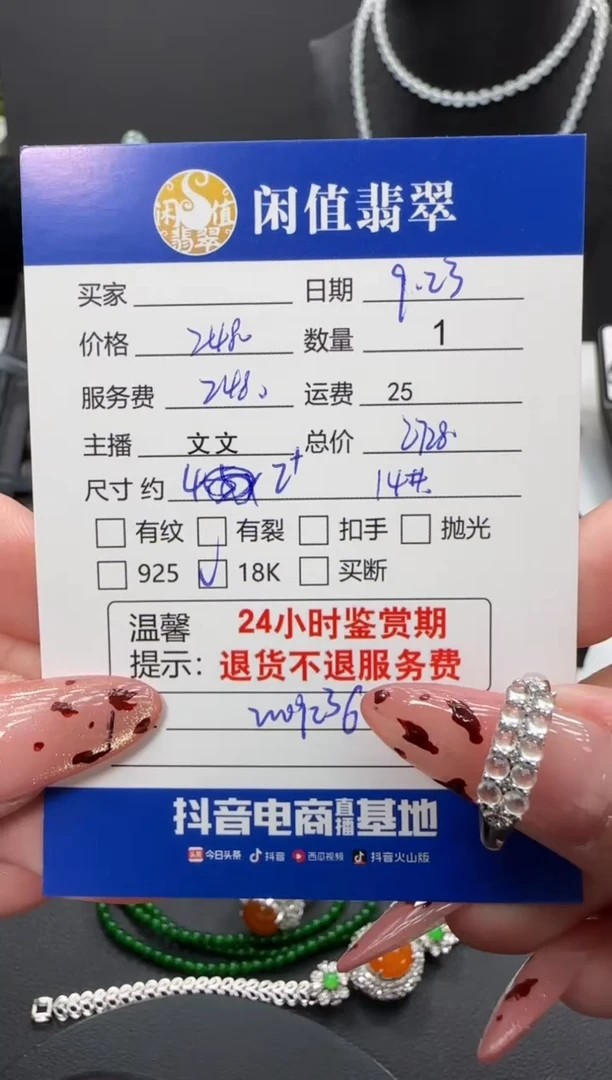 闲值翡翠 闲值翡翠
买家 日期 9.23
价格 2480 数量 1
服务费 248 运费 25
主播 文文 总价 2728
尺寸 约 4 2+ 14#
有纹 有裂 扣手 抛光
925 18K 买断
温馨 24小时鉴赏期
提示: 退货不退服务费
抖音电商直播基地
头条 今日头条 抖音 西瓜视频 抖音火山版